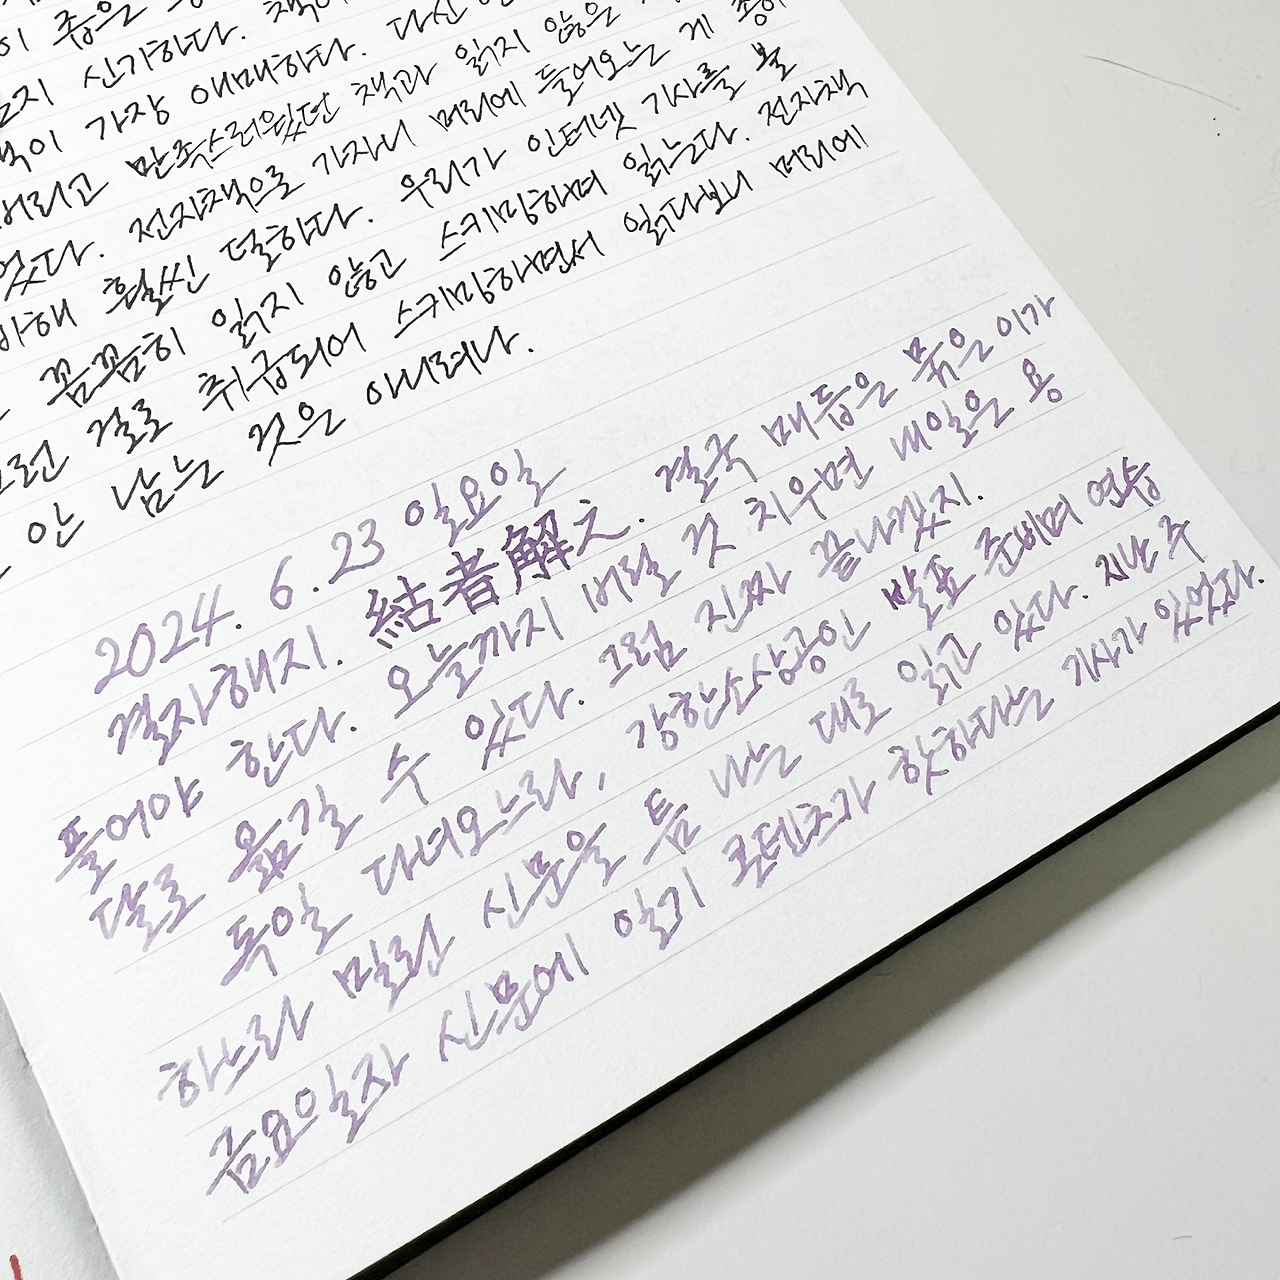 이 좁은
는지 신기하다. 책이
책이 가장 애매하다. 다신
버리고 만족스러웠던 책과 읽지 않은
었다. 전자책으로 가자니 머리에 들어오는 게 종이
비해 훨씬 덜하다. 우리가 인터넷 기사를 볼
꼼꼼히 읽지 않고 스키밍하며 읽는다. 전자책
그런 걸로 취급되어 스키밍하면서 읽다보니 머리에
안 남는 것은 아니려나.
2024. 6. 23 일요일
결자해지. 結者解之. 결국 매듭은 묶은 이가
풀어야 한다. 오늘까지 버릴 것 치우면 내일은 용
달로 옮길 수 있다. 그럼 진짜 끝나겠지.
독일 다녀오느라, 강한소상공인 발표 준비며 연습
하느라 밀린 신문을 틈 나는 대로 읽고 있다. 지난 주
금요일자 신문에 일기 콘텐츠가 핫하다는 기사가 있었다.